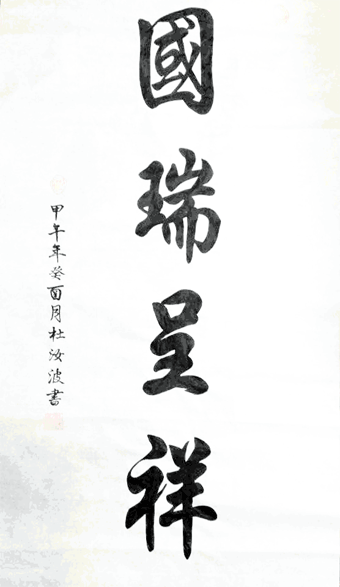 國瑞呈祥
甲午年癸酉月杜汝波書